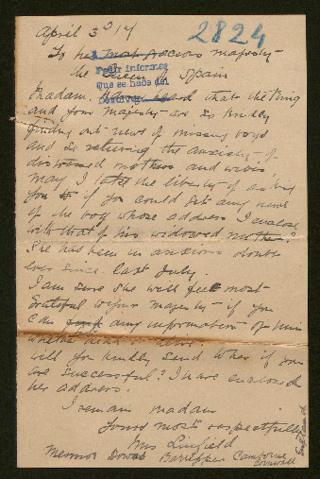 April 3d 17
2824
To her most gracious majesty
the Queen of Spain
Pedir informes
que se hace del
Madam. Have heard that the King
and your Majesty are so kindly
finding out news of missing boys
and so relieving the anxiety of
distressed mothers and wives
may I take the liberty of asking
you if you could get any news
of the boy whose address I enclose
with that of his widowed mother?
She has been in anxious doubt
ever since last July.
I am sure she will feel most
grateful to your majesty if you
can find any information of him
whether dead or alive.
will you kindly send to her if you
are successful? I have enclosed
her address.
I remain madam
yours most respectfully
Mrs Linfield
Barripper Camborne
Cornwall
England